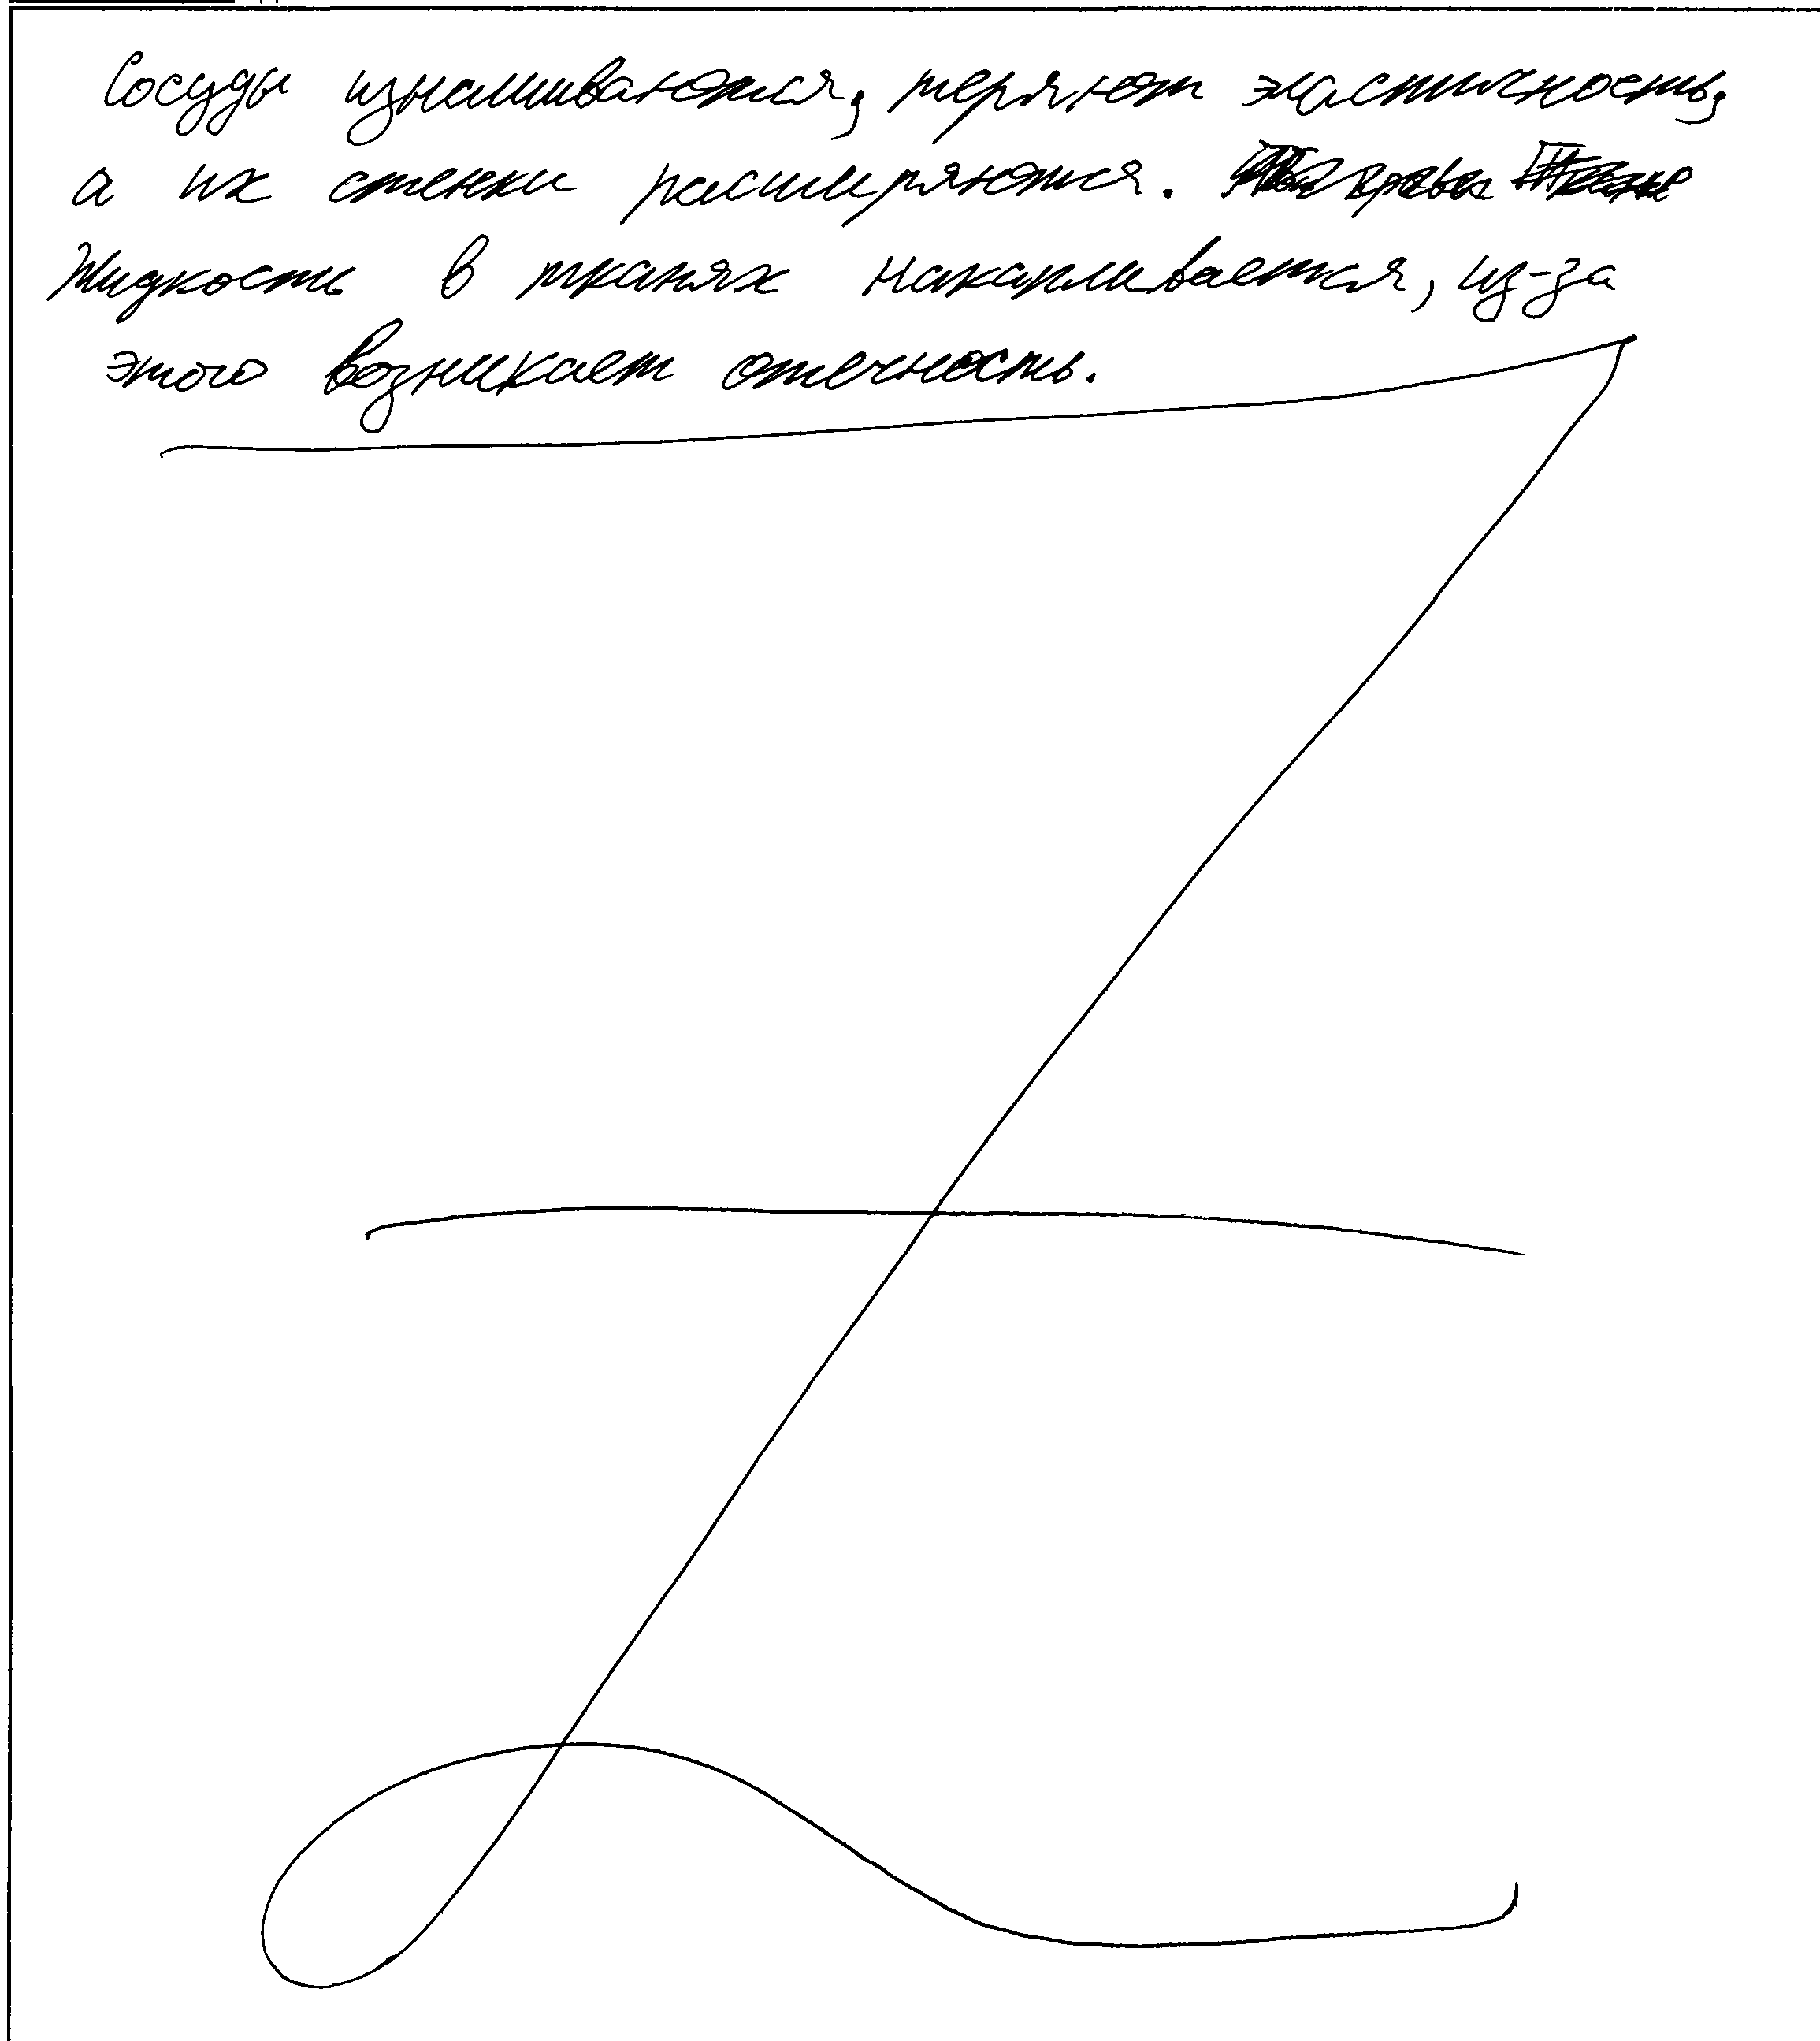 Сосуды изнашиваются, теряют эластичность,
а их стенки расширяются.
Жидкость в тканях накапливается, из-за
этого возникает отечность.